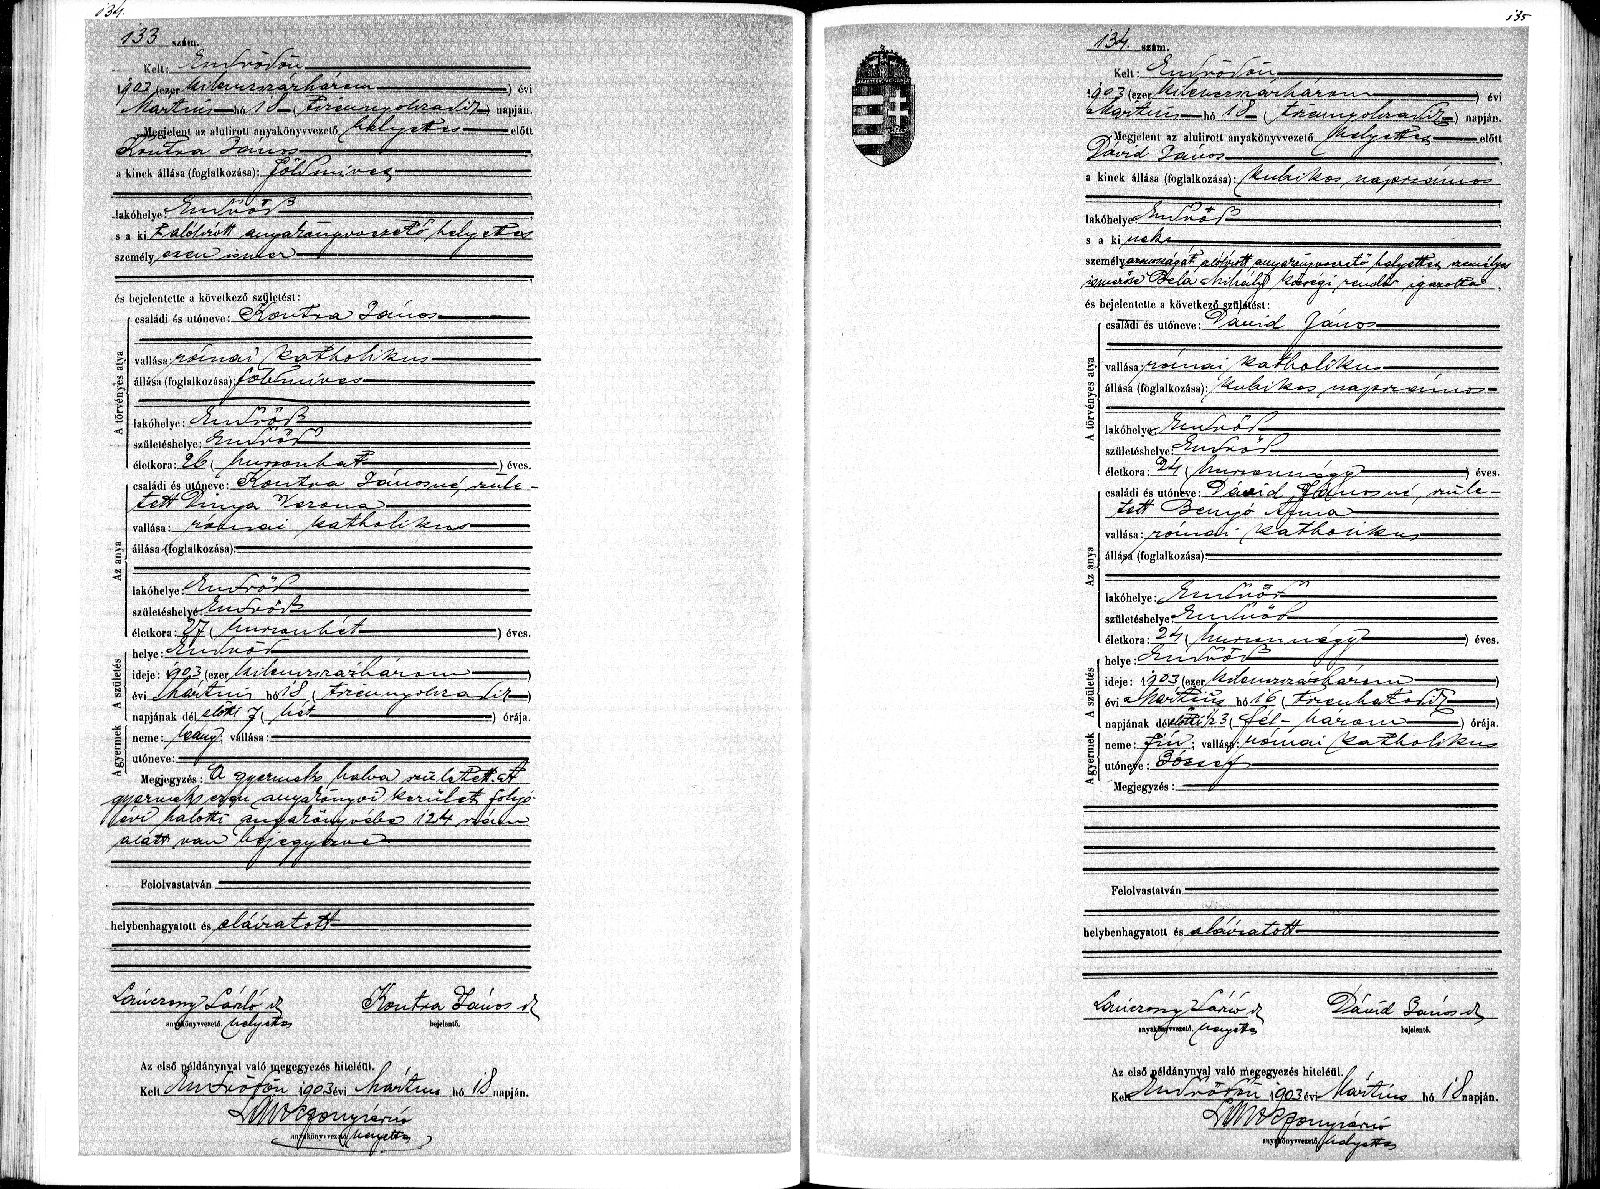 134.
133 szám.
Kelt: Endrődön
1903 (ezer kilenczszázhárom) évi
Martius hó 18 (tizennyolczadik) napján.
Megjelent az alulirott anyakönyvvezető helyettes előtt
Kontra János
a kinek állása (foglalkozása): földmives
lakóhelye: Endrőd
s a ki t alólirott anyakönyvvezető helyettes
személyesen ismer
és bejelentette a következő születést:
A törvényes atya
családi és utóneve: Kontra János
vallása: római katholikus
állása (foglalkozása): földmives
lakóhelye: Endrőd
születéshelye: Endrőd
életkora: 26 (huszonhat) éves.
Az anya
családi és utóneve: Kontra Jánosné, szüle-
tett Dinya Verona
vallása: római katholikus
állása (foglalkozása):
lakóhelye: Endrőd
születéshelye: Endrőd
életkora: 27 (huszonhét) éves.
A születés
helye: Endrőd
ideje: 1903 (ezer kilenczszázhárom)
évi Mártius hó 18 (tizennyolczadik)
napjának dél előtti 7 (hét) órája.
A gyermek
neme: leány; vallása:
utóneve:
Megjegyzés: A gyermek halva született. A
gyermek ezen anyakönyvi kerület folyó
évi halotti anyakönyvébe 124 szám
alatt van bejegyezve
Felolvastatván
helybenhagyatott és aláiratott
László Kontra János
anyakönyvvezető. helyettes bejelentő.
Az első példánynyal való megegyezés hiteléül.
Kelt Endrődön 1903 évi Mártius hó 18 napján.
anyakönyvvezető helyettes
135
134. szám.
Kelt: Endrődön
1903 (ezer kilenczszázhárom) évi
Martius hó 18 (tizennyolczadik) napján.
Megjelent az alulirott anyakönyvvezető helyettes előtt
Dávid János
a kinek állása (foglalkozása): kubikos napszámos
lakóhelye: Endrőd
s a ki nek
személyazonosságát alólirott anyakönyvvezető helyettes személyes
ismerőse Bela Mihály községi rendőr igazolta
és bejelentette a következő születést:
A törvényes atya
családi és utóneve: Dávid János
vallása: római katholikus
állása (foglalkozása): kubikos napszámos
lakóhelye: Endrőd
születéshelye: Endrőd
életkora: 24 (huszonnégy) éves.
Az anya
családi és utóneve: Dávid Jánosné, szüle-
tett Benyó Anna
vallása: római katholikus
állása (foglalkozása):
lakóhelye: Endrőd
születéshelye: Endrőd
életkora: 24 (huszonnégy) éves.
A születés
helye: Endrőd
ideje: 1903 (ezer kilenczszázhárom)
évi Mártius hó 16 (tizenhatodik)
napjának délelőtti 1/23 (fél-három) órája.
A gyermek
neme: fiú; vallása: római katholikus
utóneve: József
Megjegyzés:
Felolvastatván
helybenhagyatott és aláiratott
László Dávid János
anyakönyvvezető. helyettes bejelentő.
Az első példánynyal való megegyezés hiteléül.
Kelt Endrődön 1903 évi Mártius hó 18 napján.
anyakönyvvezető helyettes